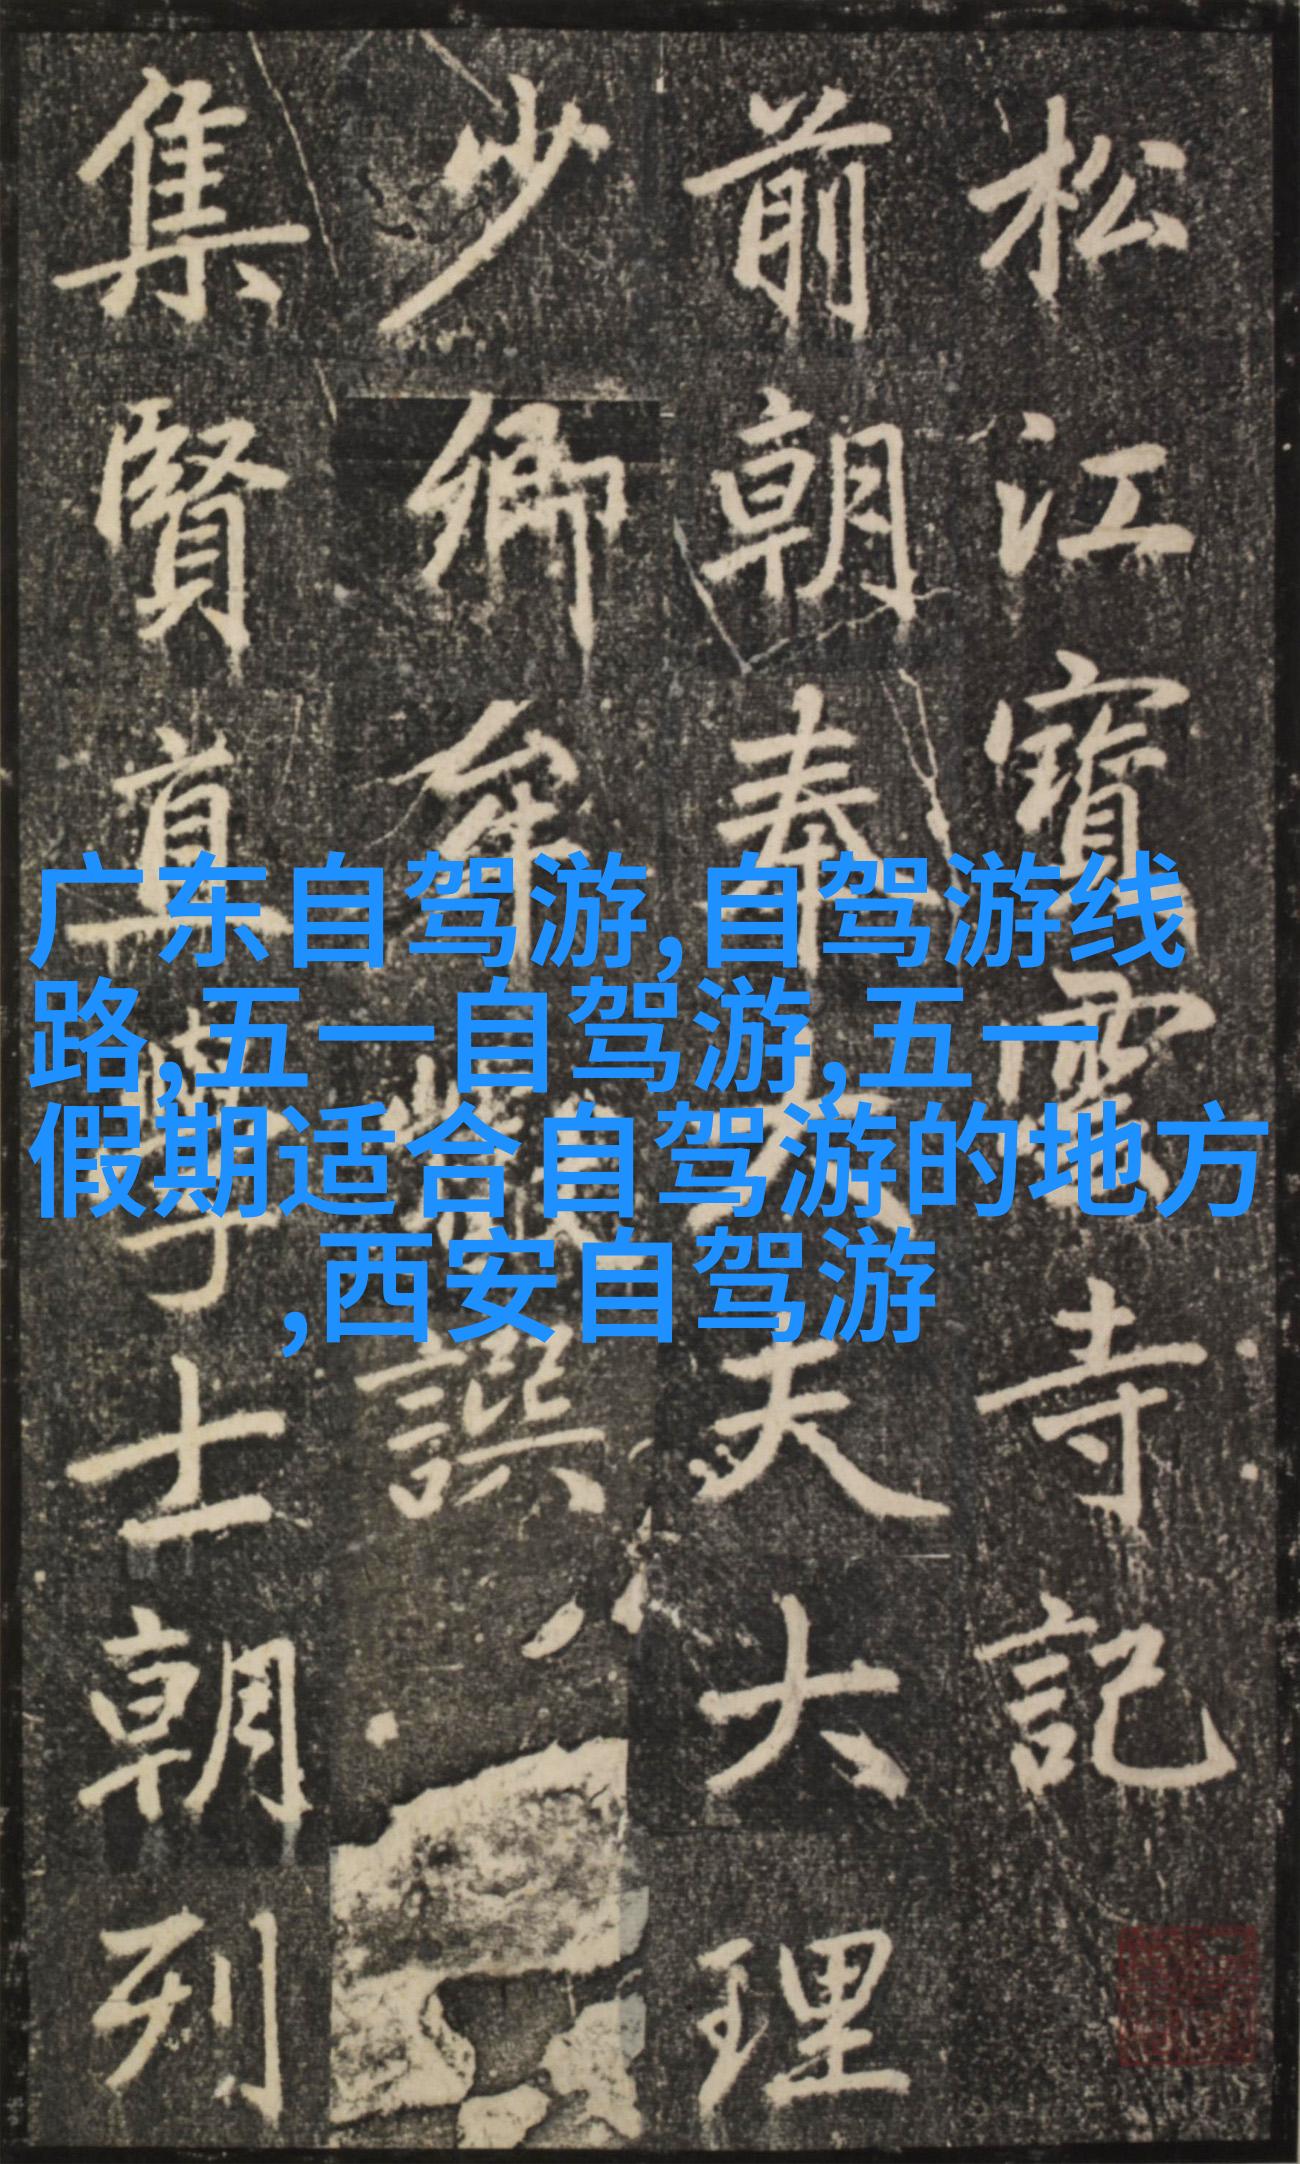 松江寳雲寺記
前朝奉大夫大理
少卿牟巘譔
集賢直學士朝列
广东自驾游,自驾游线
路,五一自驾游,五一
假期适合自驾游的地方
,西安自驾游